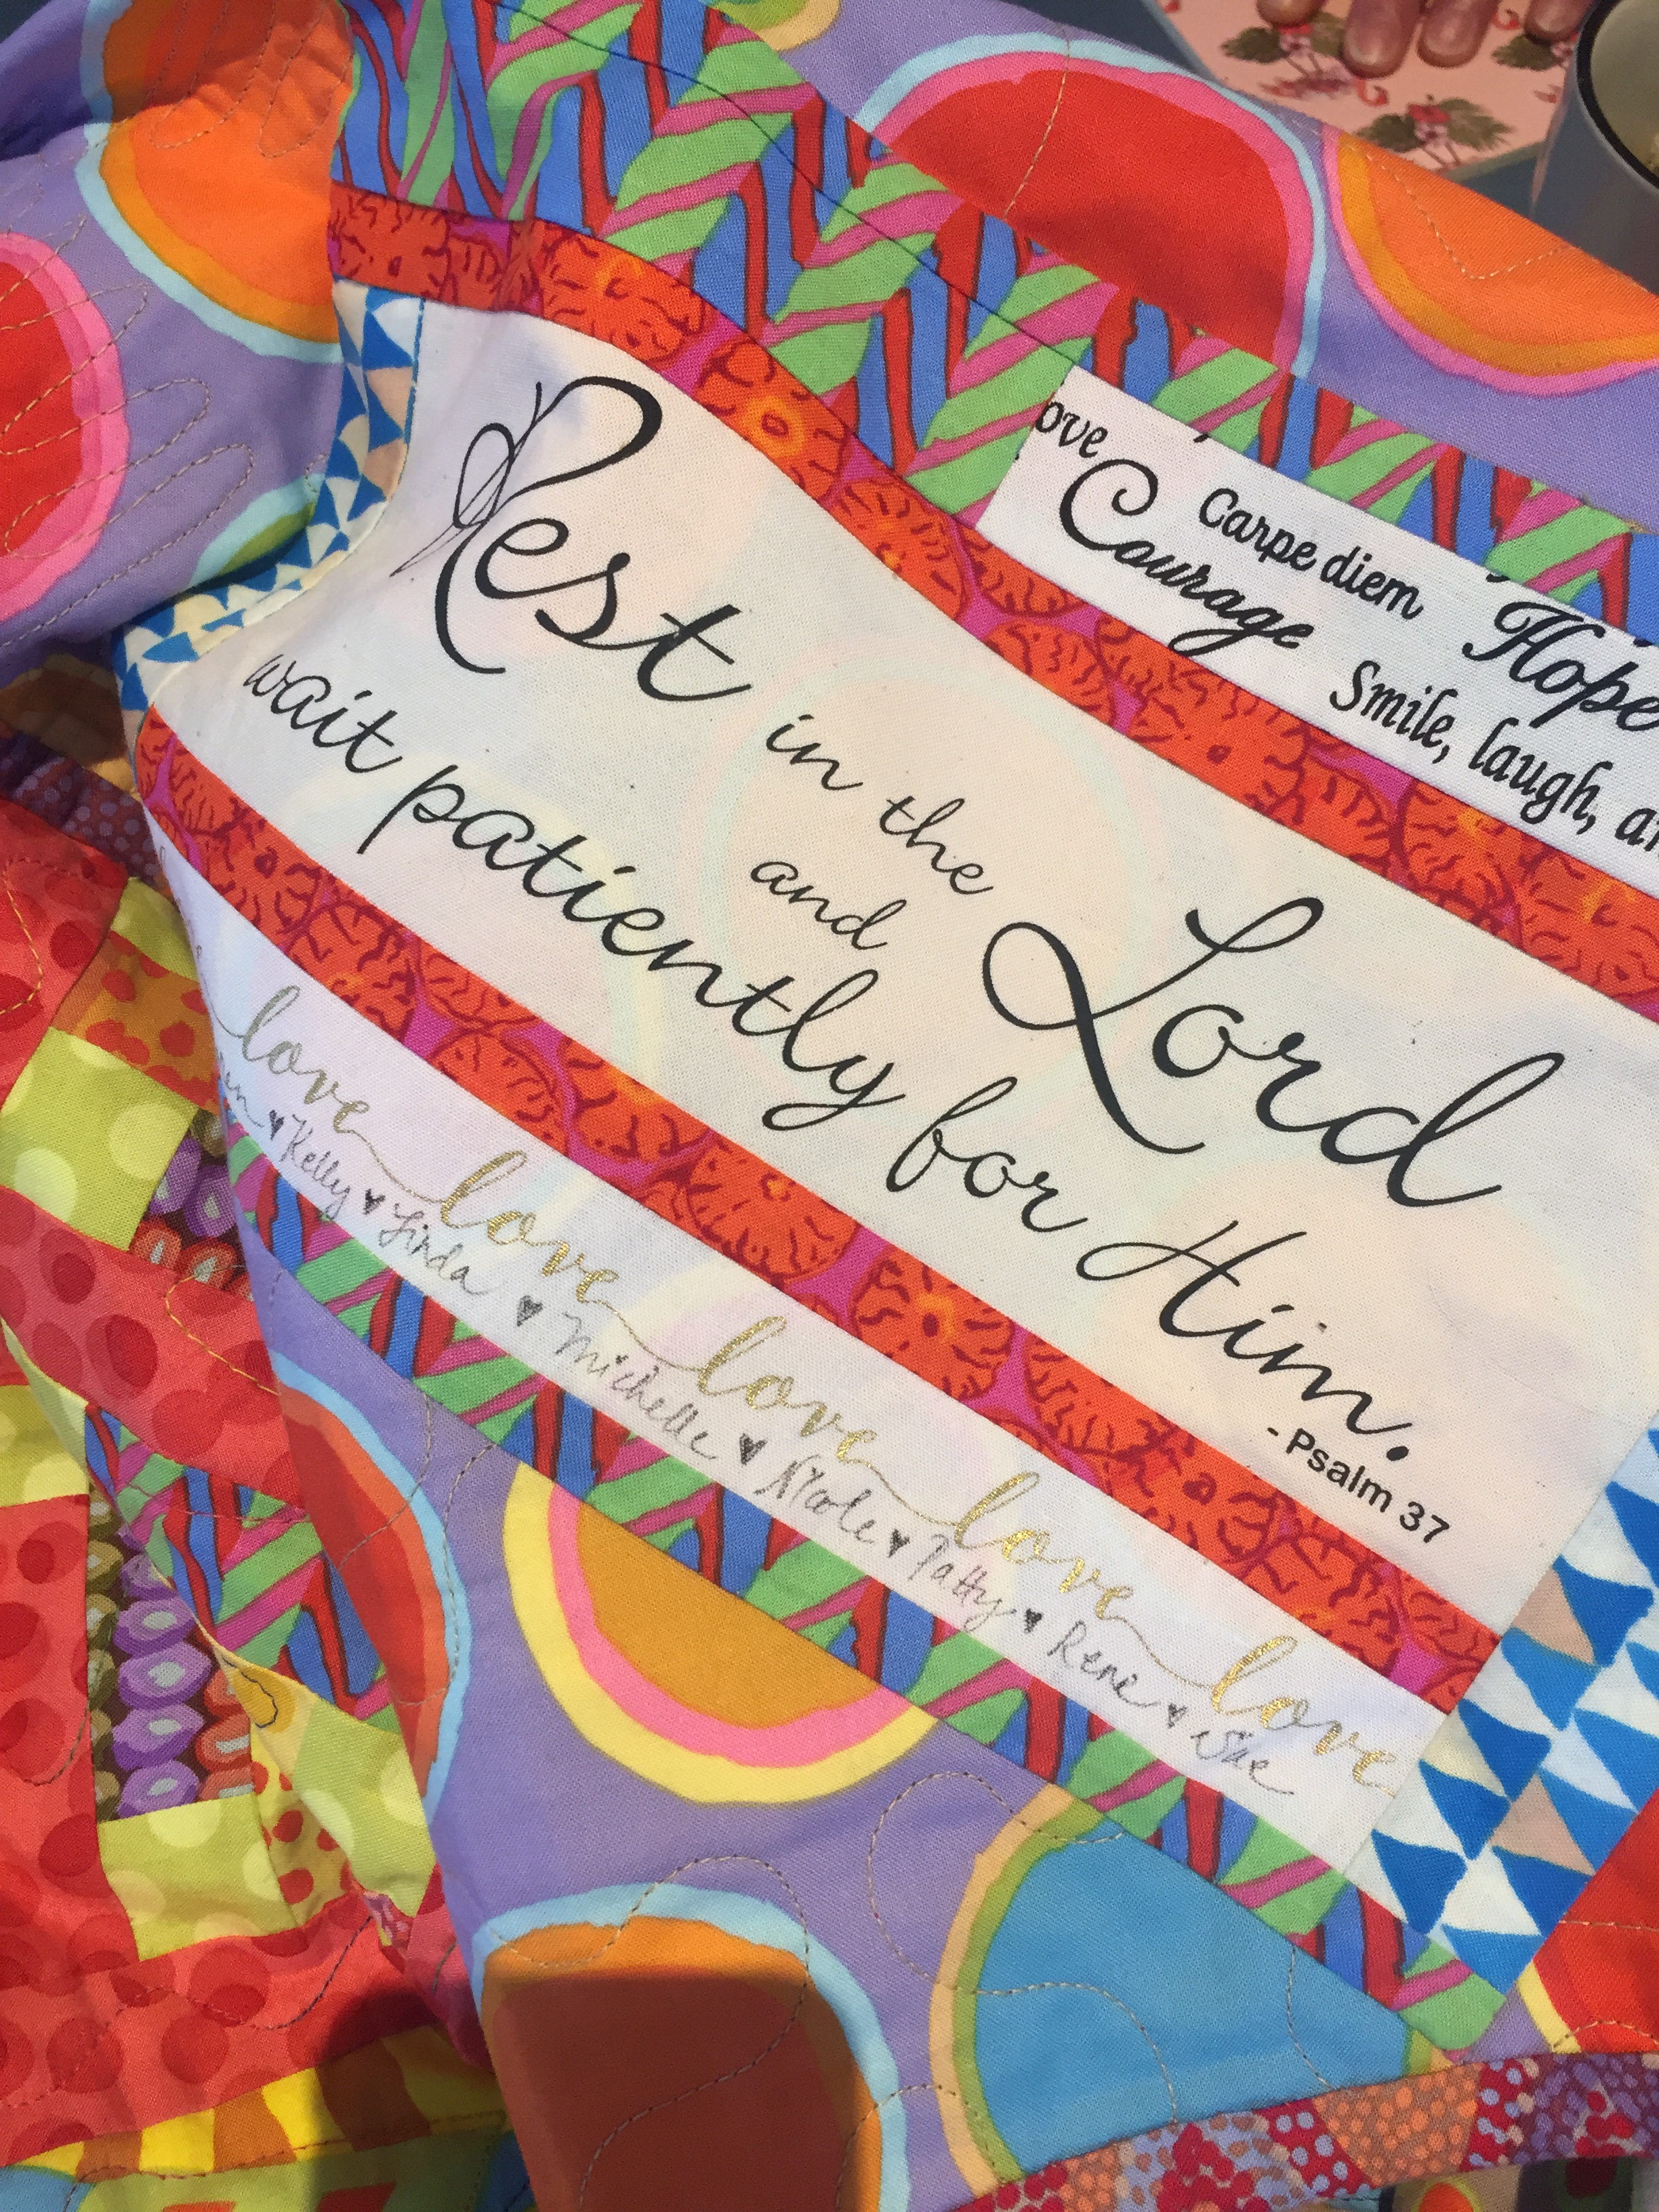 ove Carpe diem
Courage Hope
Smile, laugh,
Rest in the Lord
and
wait patiently for Him.
- Psalm 37
love love love love love
♥ Kelly ♥ Linda ♥ Michelle ♥ Nicole ♥ Patty ♥ Rene ♥ Sue